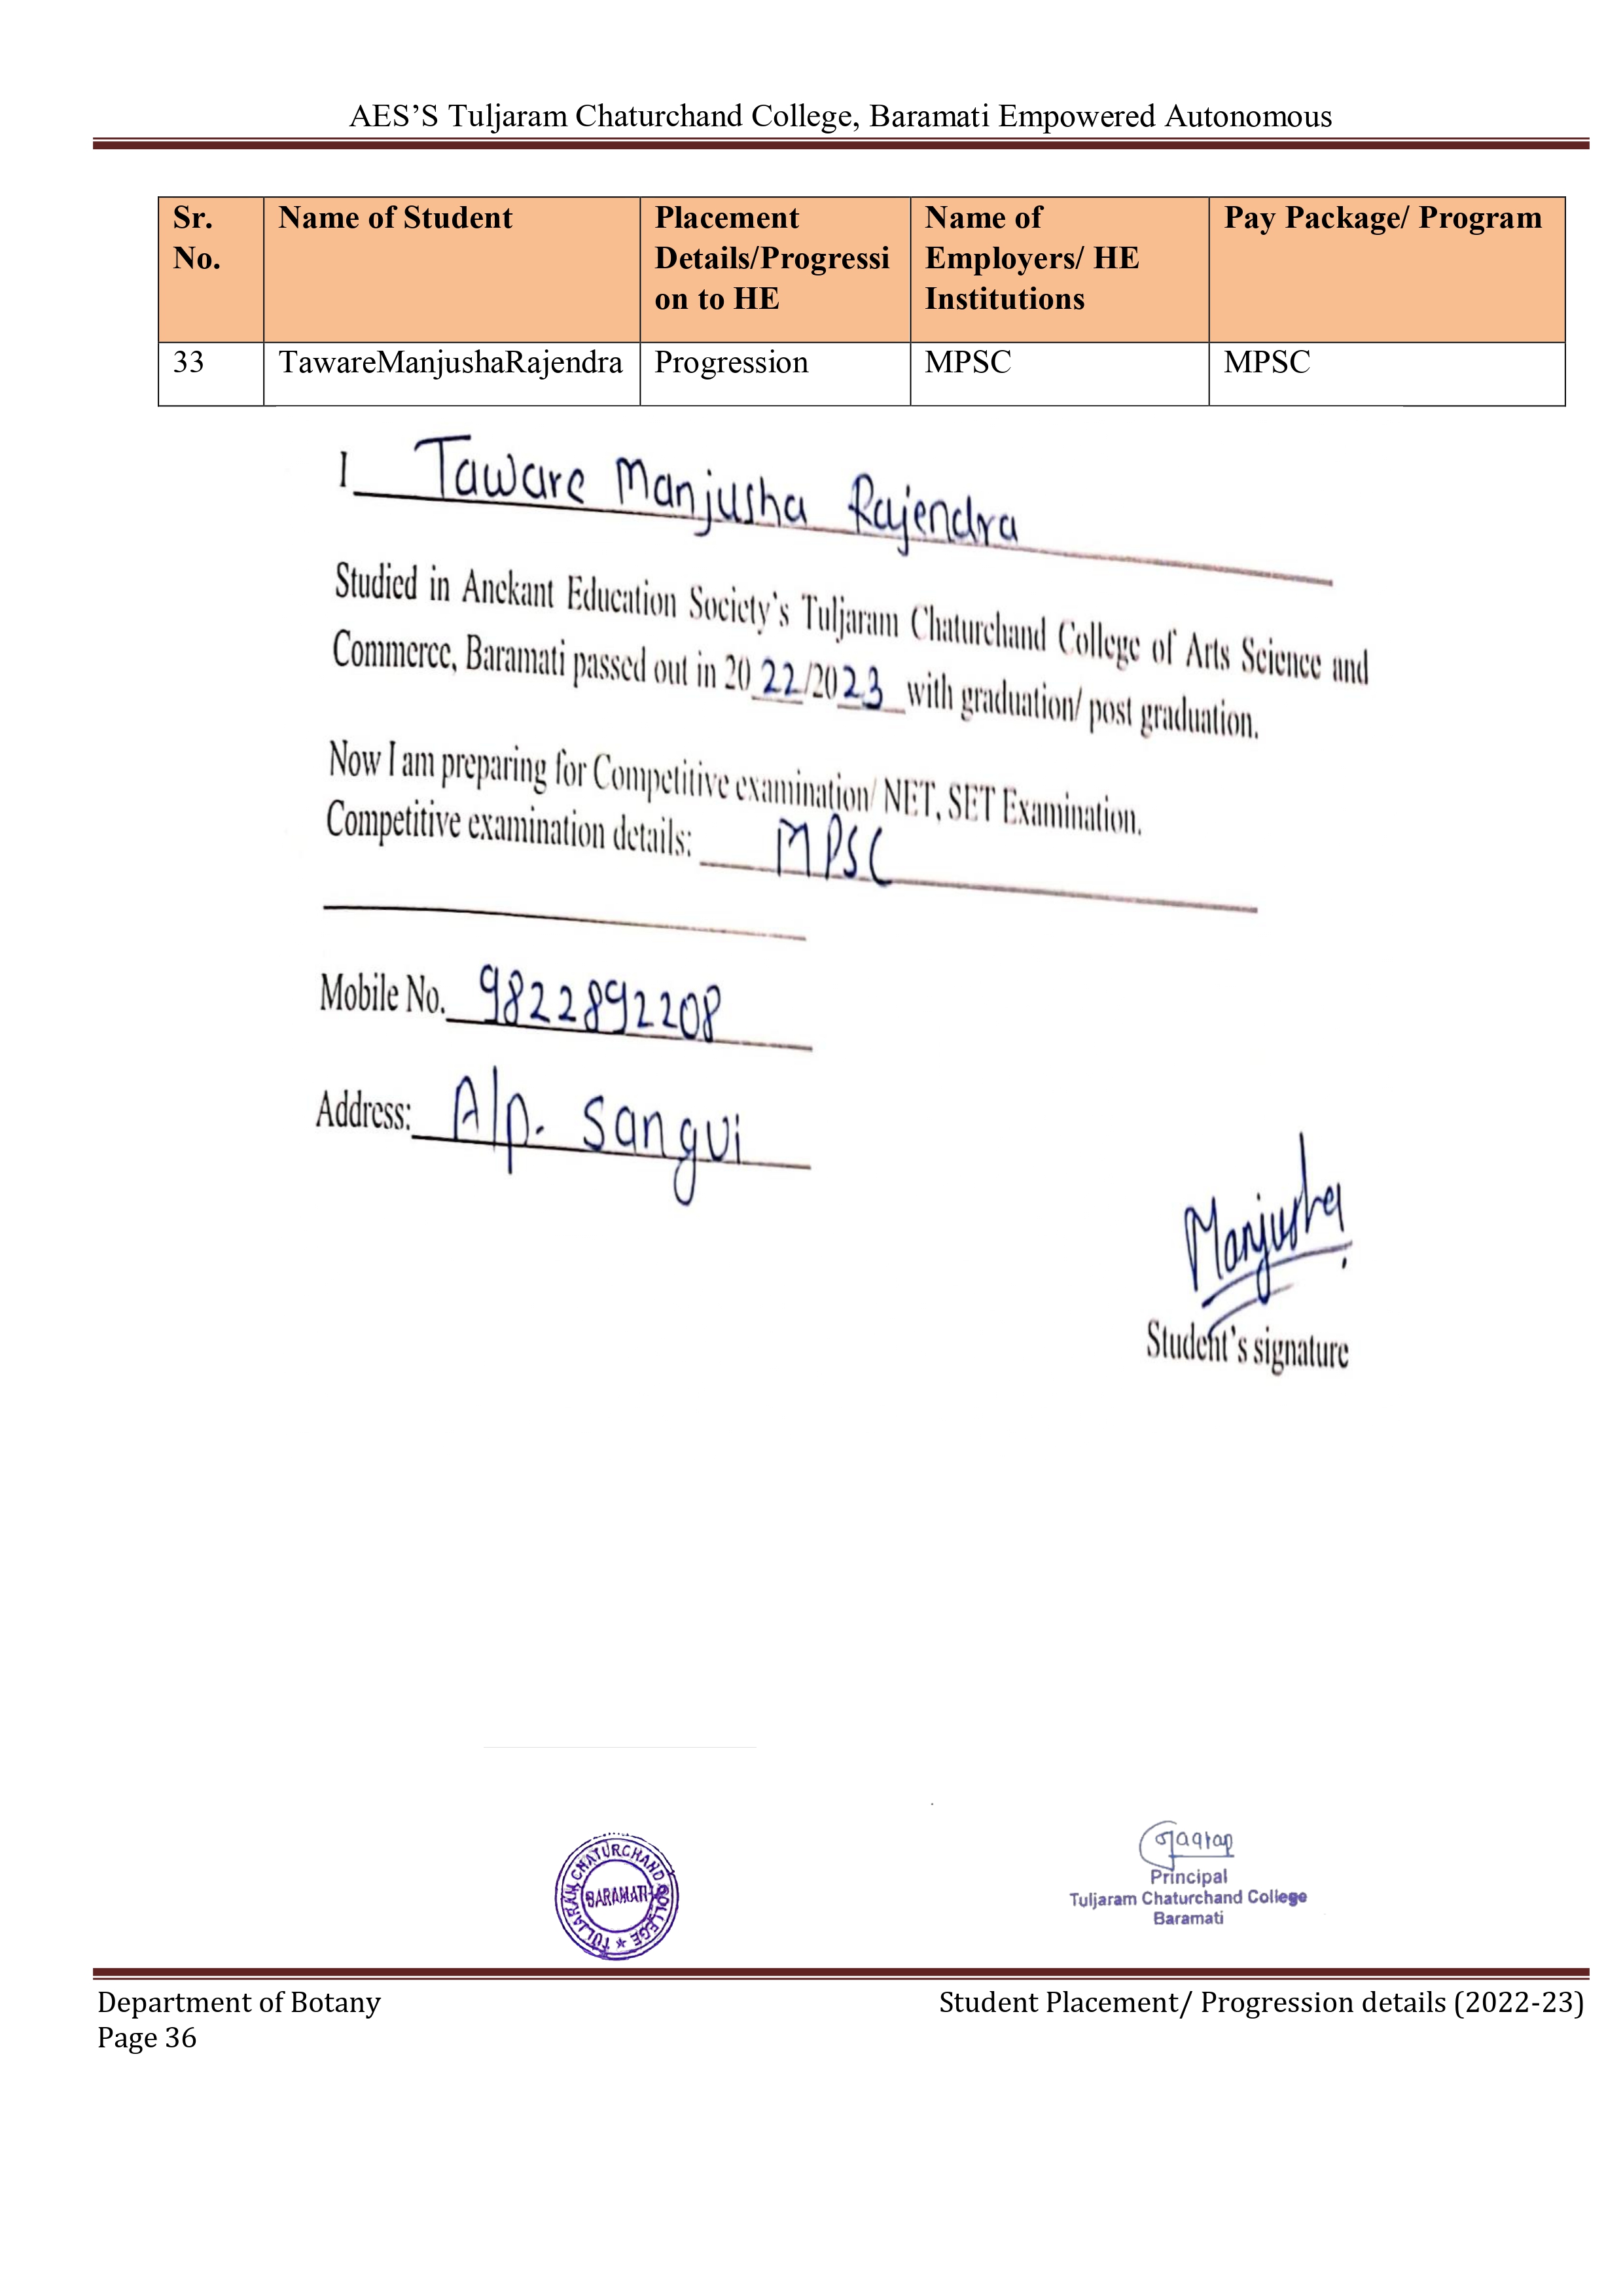 AES’S Tuljaram Chaturchand College, Baramati Empowered Autonomous
Sr. No. Name of Student Placement Details/Progression to HE Name of Employers/ HE Institutions Pay Package/ Program
33 TawareManjushaRajendra Progression MPSC MPSC
I Taware Manjusha Rajendra
Studied in Anekant Education Society’s Tuljaram Chaturchand College of Arts Science and
Commerce, Baramati passed out in 20 22/2023 with graduation/ post graduation.
Now I am preparing for Competitive examination/ NET, SET Examination.
Competitive examination details: MPSC
Mobile No. 9822892208
Address: A/p. Sangvi
Manjusha
Student’s signature
TULJARAM CHATURCHAND COLLEGE ★
BARAMATI
Jagtap
Principal
Tuljaram Chaturchand College
Baramati
Department of Botany Student Placement/ Progression details (2022-23)
Page 36